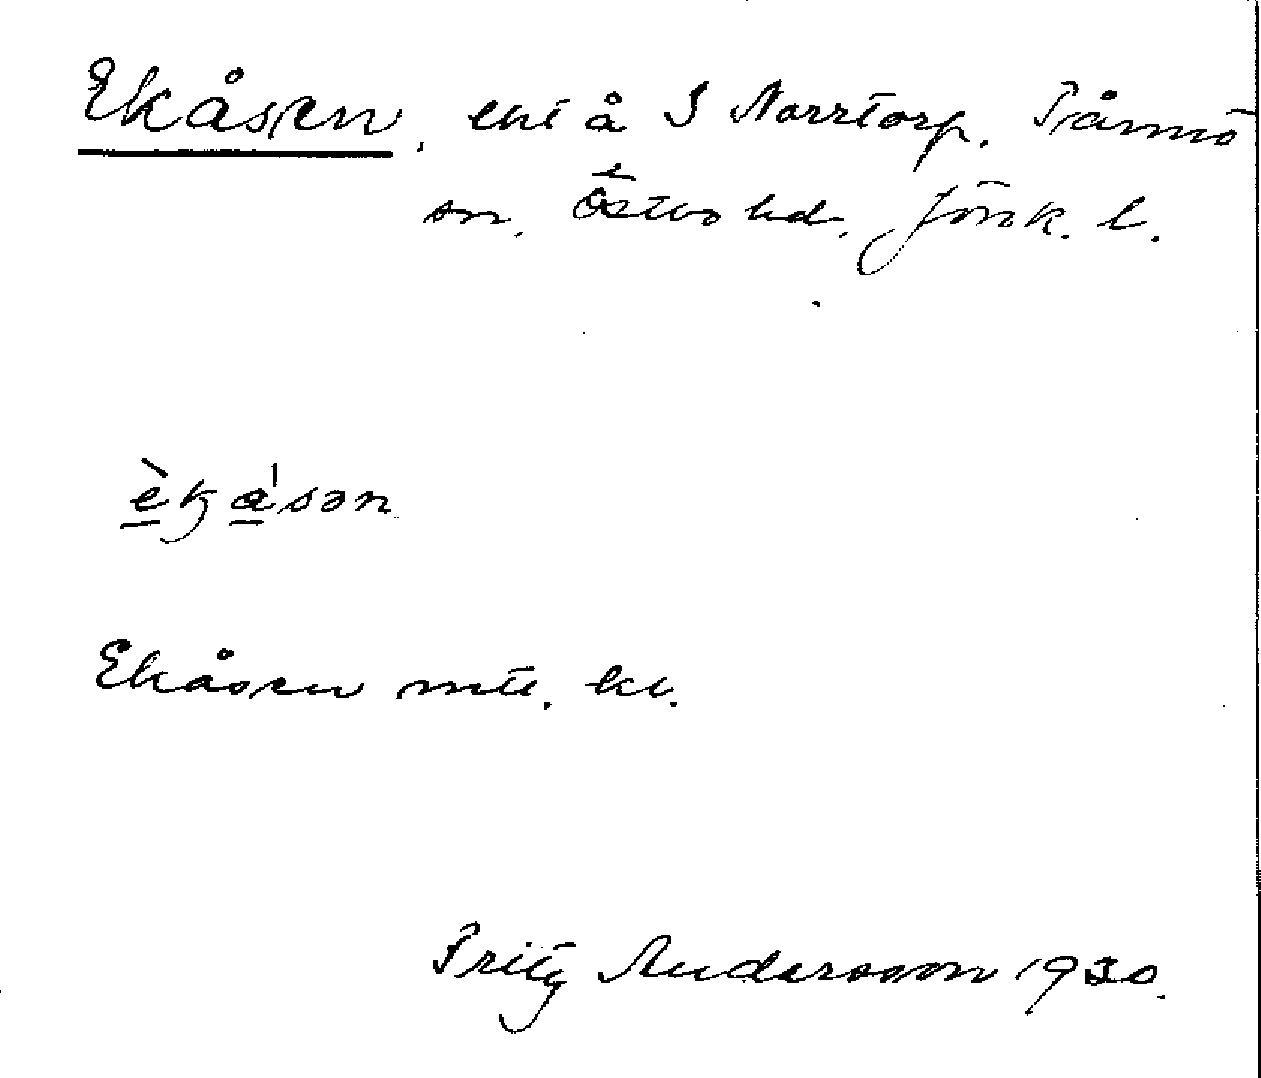 Ekåsen, ent å S Norrtorp. Fåmmö
sn. Östbo hd. Jönk. l.
èkåsən
Ekåsen mtl. kv.
Fritz Andersson 1930.